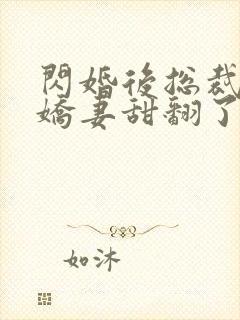 閃婚後總裁
嬌妻甜翻了
如沐